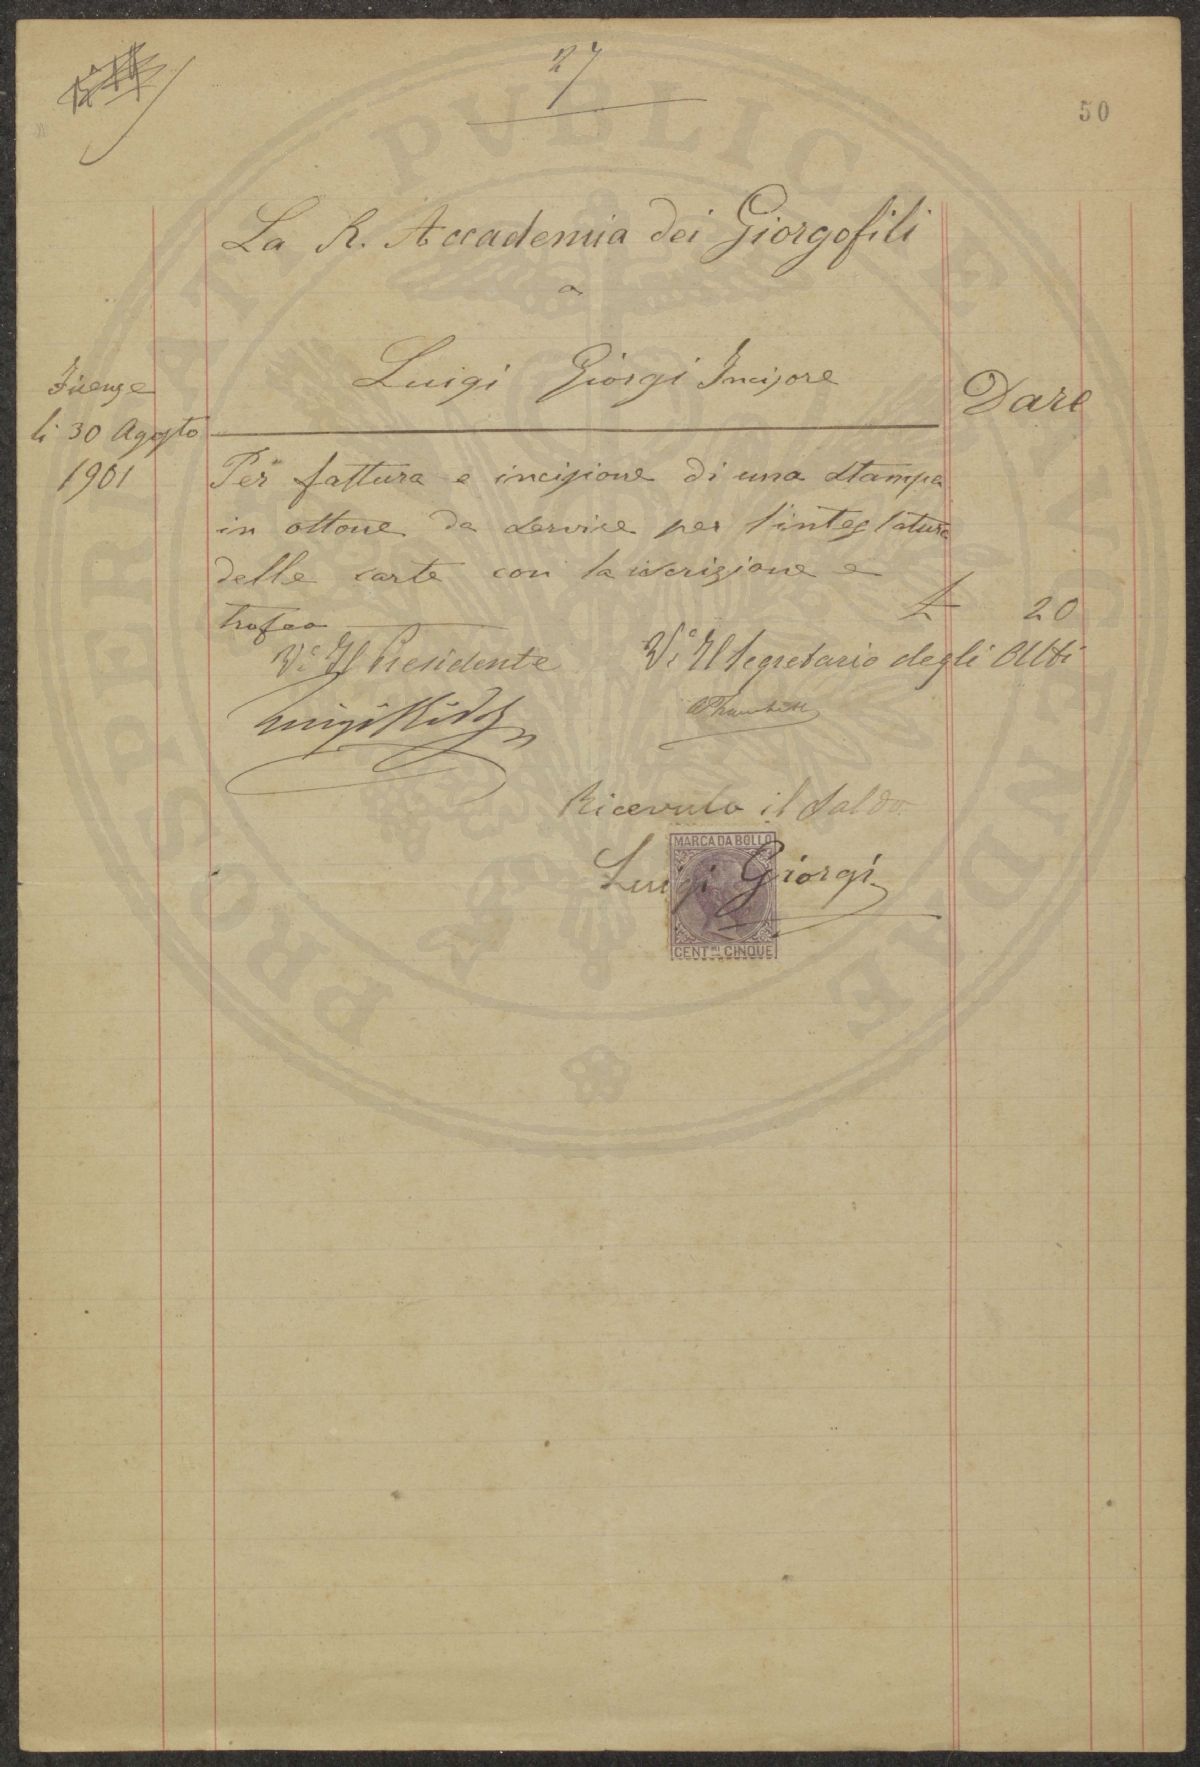 27
50
La R. Accademia dei Giorgofili
a
Luigi Giorgi Incisore
Dare
Firenze
li 30 Agosto
1901
Per fattura e incisione di una stampa
in ottone da servire per l'integlatura
delle carte con la iscrizione e
trofeo
£ 20
Vº Il Presidente
Vº Il Segretario degli Atti
Luigi Ridolfi
Ricevuto il saldo
MARCA DA BOLLO
Luigi Giorgi
CENT.MI CINQUE
PROSPERITATI PUBLICAE AUGENDAE